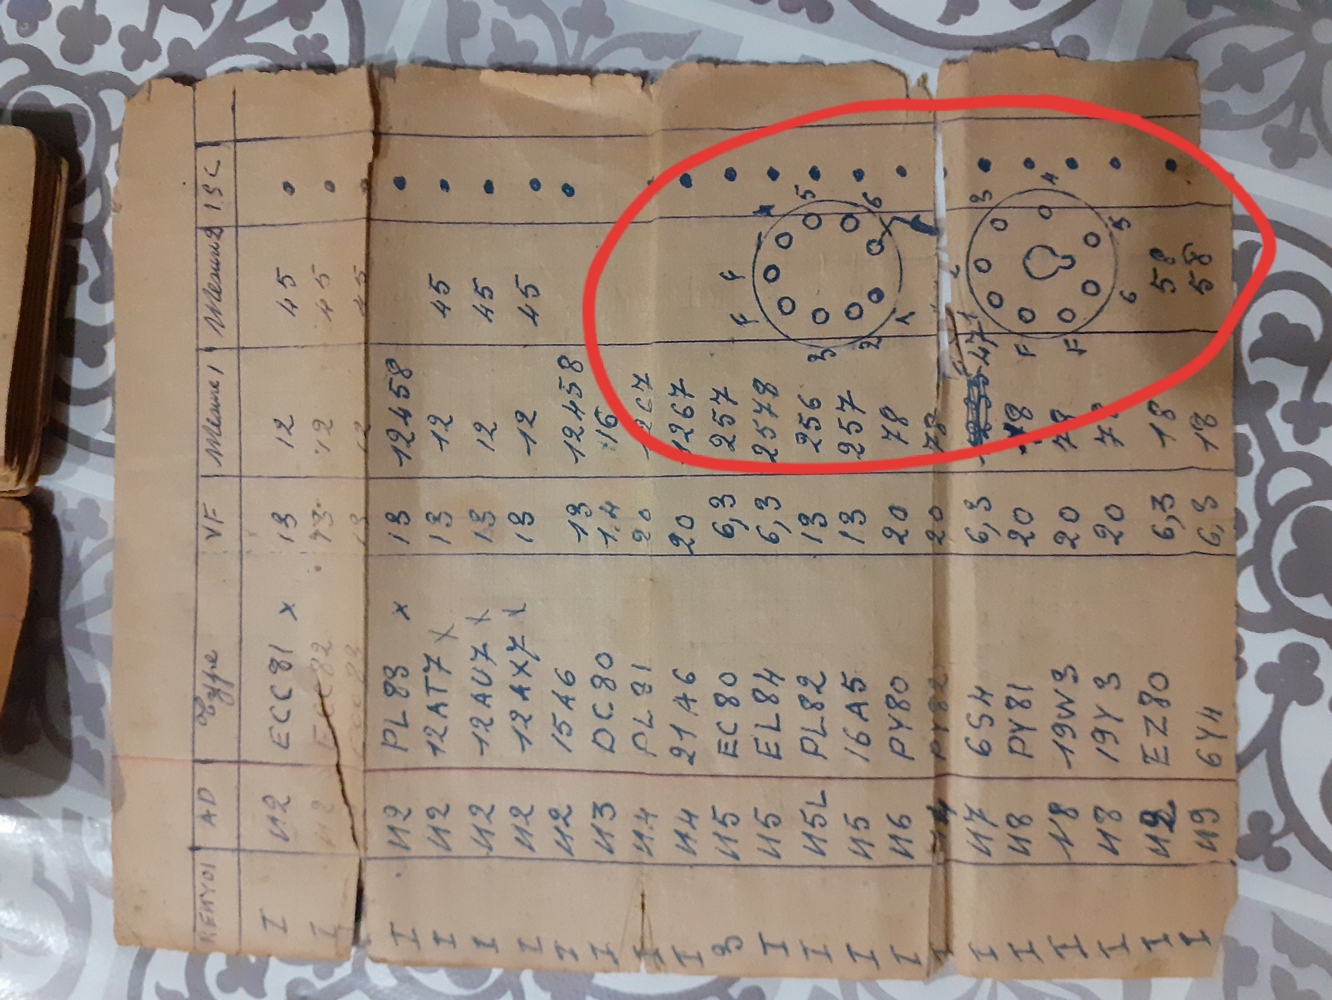 RENVOI AD Type VF Mesure 1 Mesure 2 ISC
I U2 ECC81 x 13 12 45
I U2 ECC82 13 12 45
ECC83 13 12 45
I U2 PL83 x 13 12458
I U2 12AT7 x 13 12 45
I U2 12AU7 x 13 12 45
I U2 12AX7 x 13 12 45
I U2 15A6 13 12458
I U3 DC80 1.4 16
I U4 PL81 20 1267
I U4 21A6 20 1267
3 U5 EC80 6,3 257
I U5 EL84 6,3 2578
I U5L PL82 13 256
I U5 16A5 13 257
I U6 PY80 20 78
I PY82 20 78
I U7 6S4 6,3 47
I U8 PY81 20 18
I U8 19W3 20 78
I U8 19Y3 20
I U2 EZ80 6,3 18 58
I U9 6Y4 6,3 18 58
4 5 6
F
F 3 2 1
3 4 5
2 6
1 F F